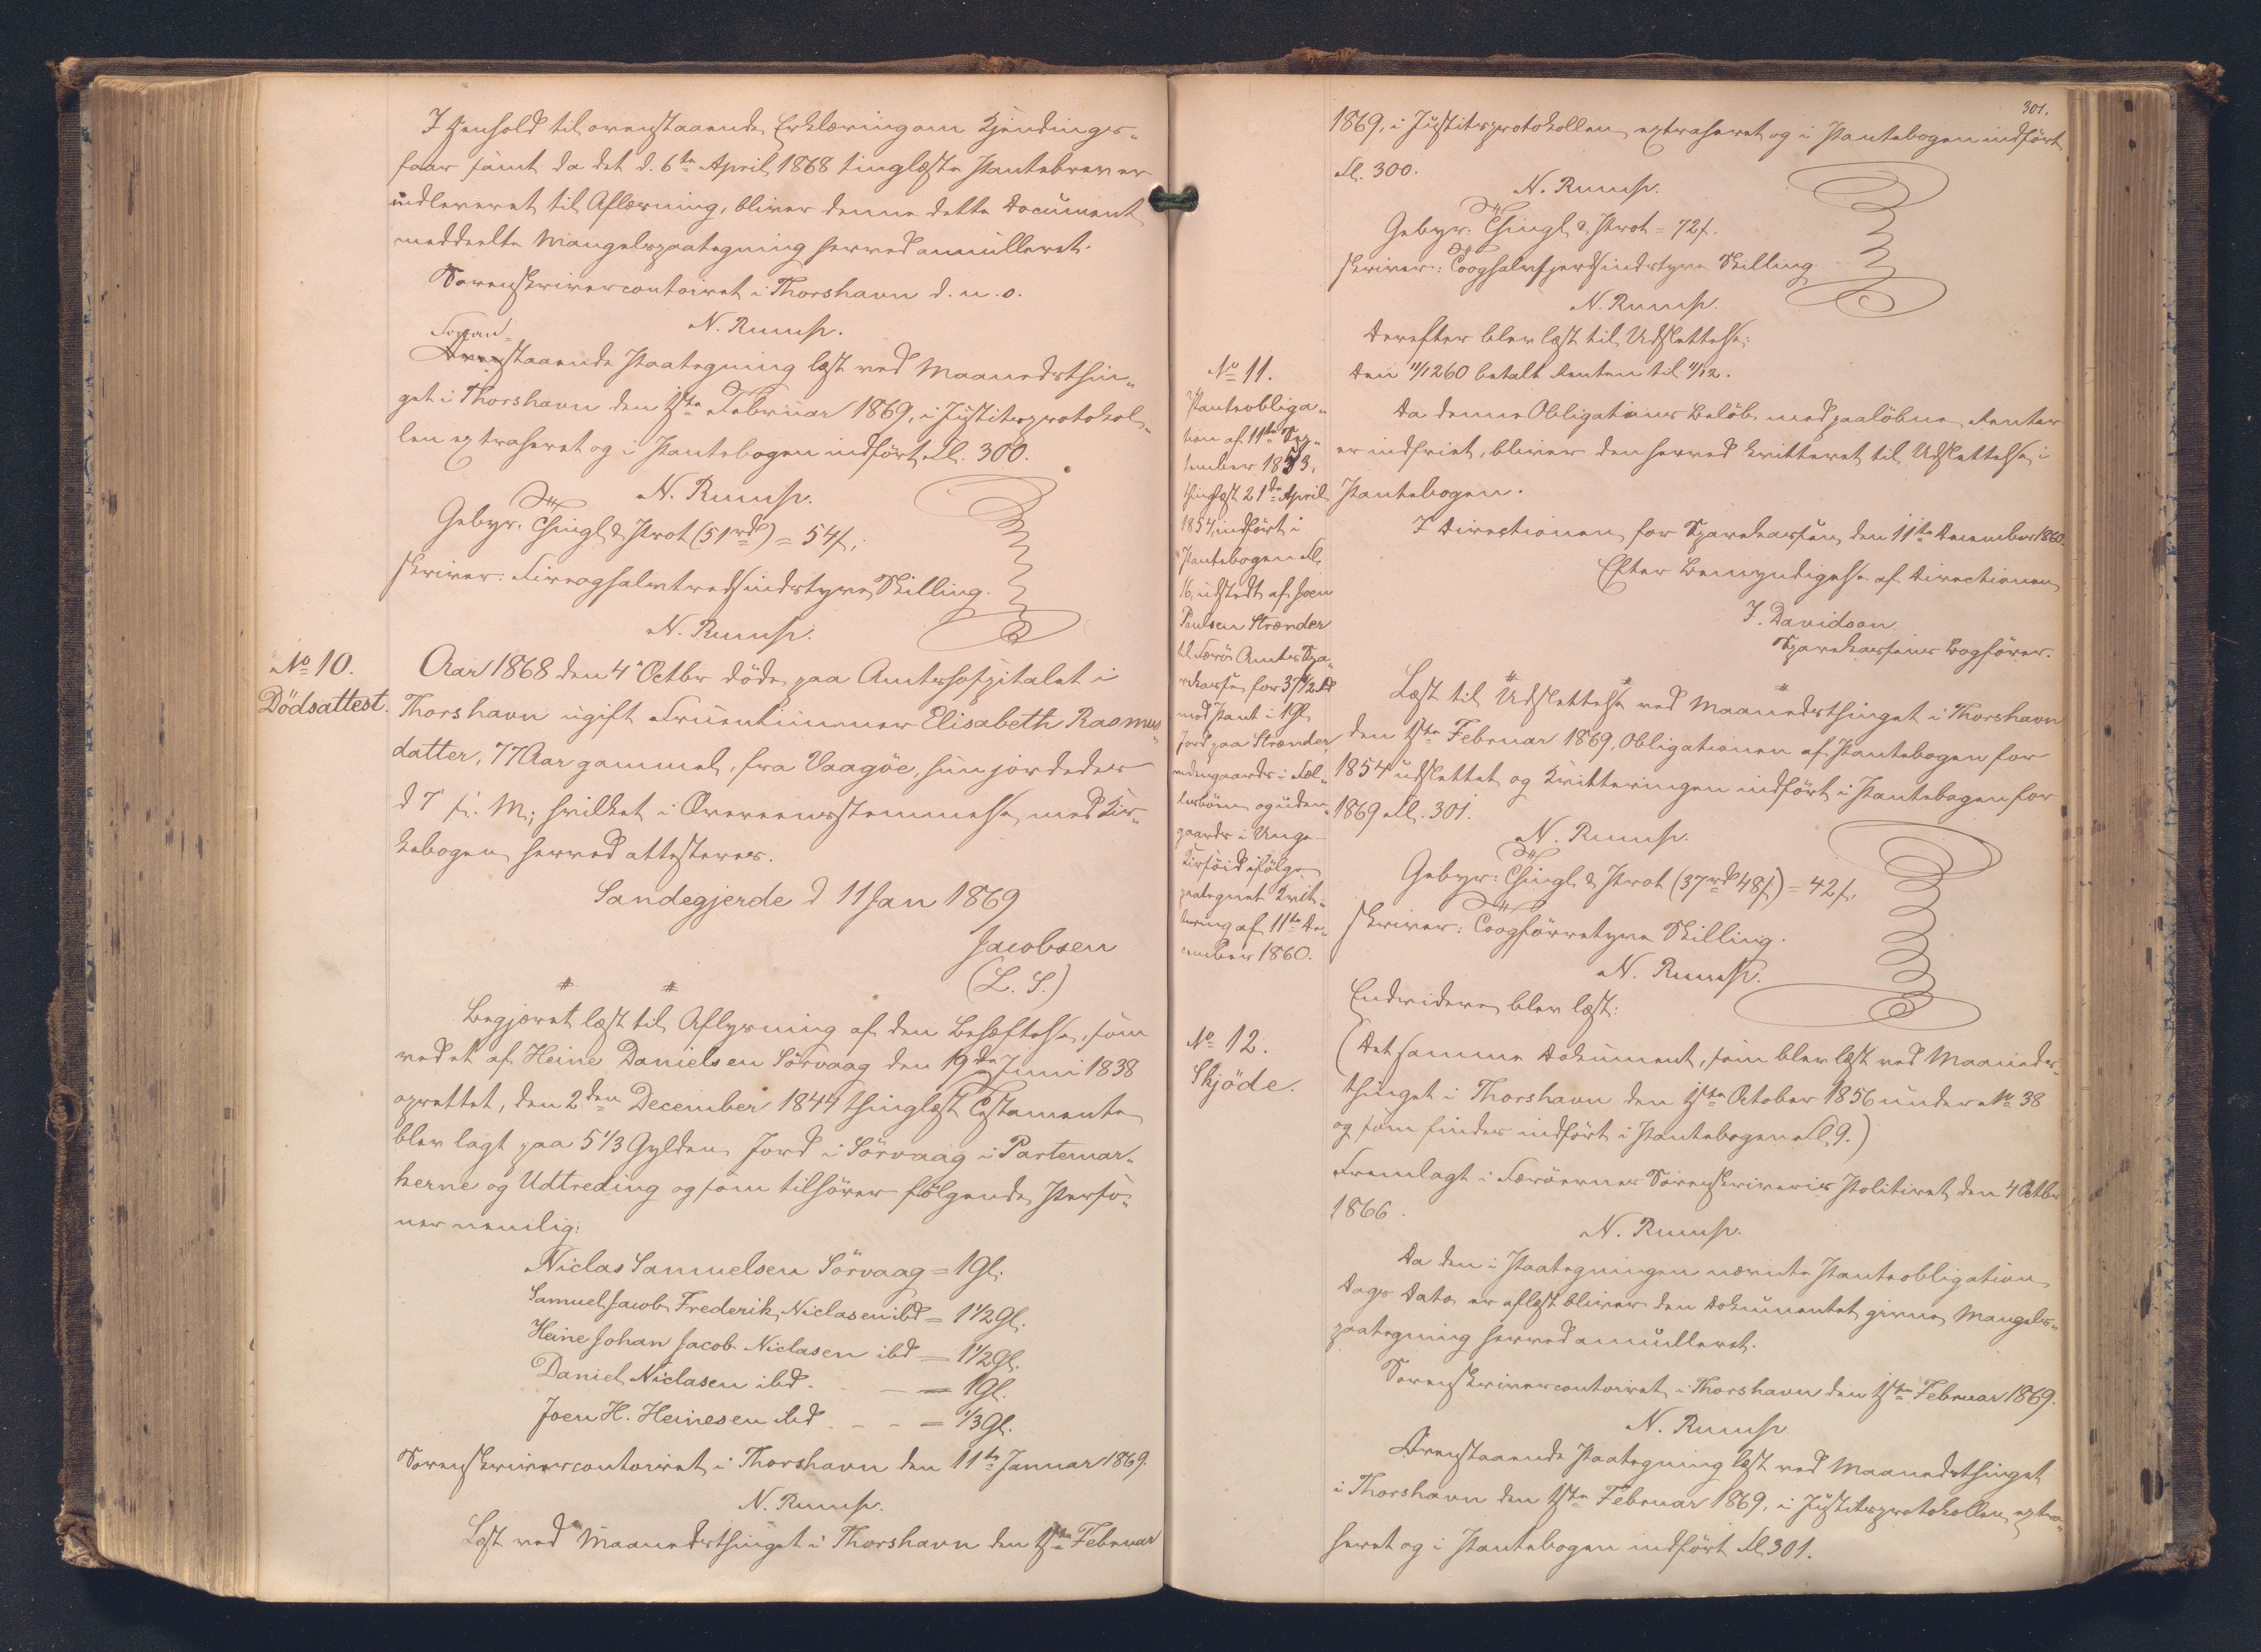 I Henhold til ovenstaaende Erklæring om Kjendinges-
faar samt da det d. 6te April 1868 tinglæste Pantebrev er
indleveret til Aflæsning, bliver denne dette Document
meddeelte Mangelspaategning herved annulleret.
Sorenskrivercontoiret i Thorshavn d. u. s.
N. Rump.
Foran-
staaende Paategning læst ved Maanedsthin-
get i Thorshavn den 1ste Februar 1869, i Justitsprotokol-
len extraheret og i Pantebogen indført Fl. 300.
N. Rump.
Gebyr: Thingl. & Prot (51rd) = 54ſ,
skriver: Fireoghalvtredsindstyve Skilling.
N. Rump.
No 10.
Dödsattest.
Aar 1868 den 4 Octbr döde paa Amtshospitalet i
Thorshavn ugift Fruentimmer Elisabeth Rasmus-
datter, 77 Aar gammel, fra Vaagöe, hun jordedes
d 7 s. M; hvilket i Overeensstemmelse med Kir-
kebogen herved attesteres.
Sandegjerde d 11 Jan 1869
Jacobsen
(L. S.)
Begjæret læst til Aflysning af den Behæftelse, som
ved et af Heine Danielsen Sörvaag den 19de Juni 1838
oprettet, den 2den December 1844 thinglæst Testamente
blev lagt paa 5 1/3 Gylden Jord i Sörvaag i Partemar-
kerne og Udtreding og som tilhører følgende Perso-
ner nemlig:
Niclas Samuelsen Sörvaag = 1 Gl.
Samuel Jacob Frederik Niclasen ibd = 1 1/2 Gl.
Heine Johan Jacob Niclasen ibd = 1 1/2 Gl.
Daniel Niclasen ibd. - = 1 Gl.
Joen H. Heinesen ibd - - = 1/3 Gl.
Sorenskrivercontoiret i Thorshavn den 11te Januar 1869.
N. Rump.
Læst ved Maanedsthinget i Thorshavn den 1ste Februar
301.
1869, i Justitsprotokollen extraheret og i Pantebogen indført
Fl. 300.
N. Rump.
Gebyr: Thingl. & Prot = 72ſ.
skriver: Tooghalvfjerdsindstyve Skilling.
N. Rump.
Derefter blev læst til Udslettelse:
No 11.
Panteobliga-
tion af 11te Sep-
tember 1853,
thinglæst 21de April
1854, indført i
Pantebogen Fl.
16, udstedt af Joen
Poulsen Strænder
til Færö Amts Spa-
rekasse for 37 1/2 Rd
mod Pant i 1 Gl.
Jord paa Strænder
indengaards i
og uden-
gaards i
ifølge
paategnet Kvit-
tering af 11te De-
cember 1860.
Den 11/12 60 betalt Renten til 11/12.
Da denne Obligations Beløb med paaløbne Renter
er indfriet, bliver den herved kvitteret til Udslettelse i
Pantebogen.
I Directionen for Sparekassen, den 11te December 1860.
Efter Bemyndigelse af Directionen
J. Davidson
Sparekassens Bogfører.
Læst til Udslettelse ved Maanedsthinget i Thorshavn
den 1ste Februar 1869, Obligationen af Pantebogen for
1854 udslettet og Kvitteringen indført i Pantebogen for
1869 Fl. 301.
N. Rump.
Gebyr: Thingl. & Prot (37rd 48ſ) = 42ſ.
skriver: Toogførretyve Skilling.
N. Rump.
Endvidere blev læst:
No 12.
Skjöde.
(Det samme Dokument, som blev læst ved Maaneds-
thinget i Thorshavn den 1ste October 1856 under No 38
og som findes indført i Pantebogen Fl. 9.)
Fremlagt i Færöernes Sorenskriveries Politiret den 4 Octbr
1866.
N. Rump.
Da den i Paategningen nævnte Panteobligation
Dags Dato er aflæst bliver den Dokumentet givne Mangels-
paategning herved annulleret.
Sorenskrivercontoiret i Thorshavn den 1ste Februar 1869.
N. Rump
Ovenstaaende Paategning læst ved Maanedsthinget
i Thorshavn den 1ste Februar 1869, i Justitsprotokollen extra-
heret og i Pantebogen indført Fl. 301.